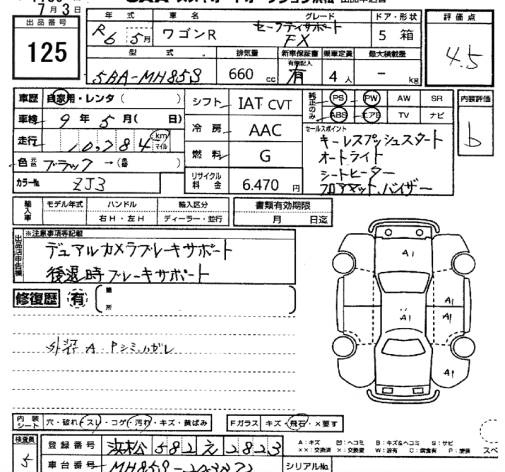 7月3日
出品番号
125
年式 車名 グレード ドア・形状 評価点
R6 5月 ワゴンR セーフティサポート FX 5 箱 4.5
型式 排気量 新車保証書 乗車定員 最大積載量
有無記入
5BA-MH85S 660cc 有 4人 - kg
車歴 自家用・レンタ( )
車検 9年5月( 日)
走行 10,784 km マイル
色 元色 ブラック →(替 )
カラーNo. ZJ3
シフト IAT CVT
冷房 AAC
燃料 G
リサイクル料金 6.470円
純正のみ PS PW AW SR
ABS エアB TV ナビ
内装評価
b
セールスポイント
キーレスプッシュスタート
オートライト
シートヒーター
フロアマット、バイザー
輸入車 モデル年式 ハンドル 輸入区分 書類有効期限
右H・左H ディーラー・並行 月 日迄
出品店申告欄 ※注意事項等記載
デュアルカメラブレーキサポート
後退時ブレーキサポート
修復歴 有 ( 箇所
外装 A・Pシミ、ハガレ
A1
A1
A1 A1
A1
内装シート 穴・破れ・スレ・コゲ・汚れ・キズ・黄ばみ Fガラス キズ・飛石・X要す
検査員 5
登録番号 浜松 582 え 2823
車台番号 MH85S- シリアルNo.
A:キズ U:ヘコミ B:キズ&ヘコミ S:サビ
XX:交換済 X:要交換 W:波有 C:腐食 P:塗装
スペ